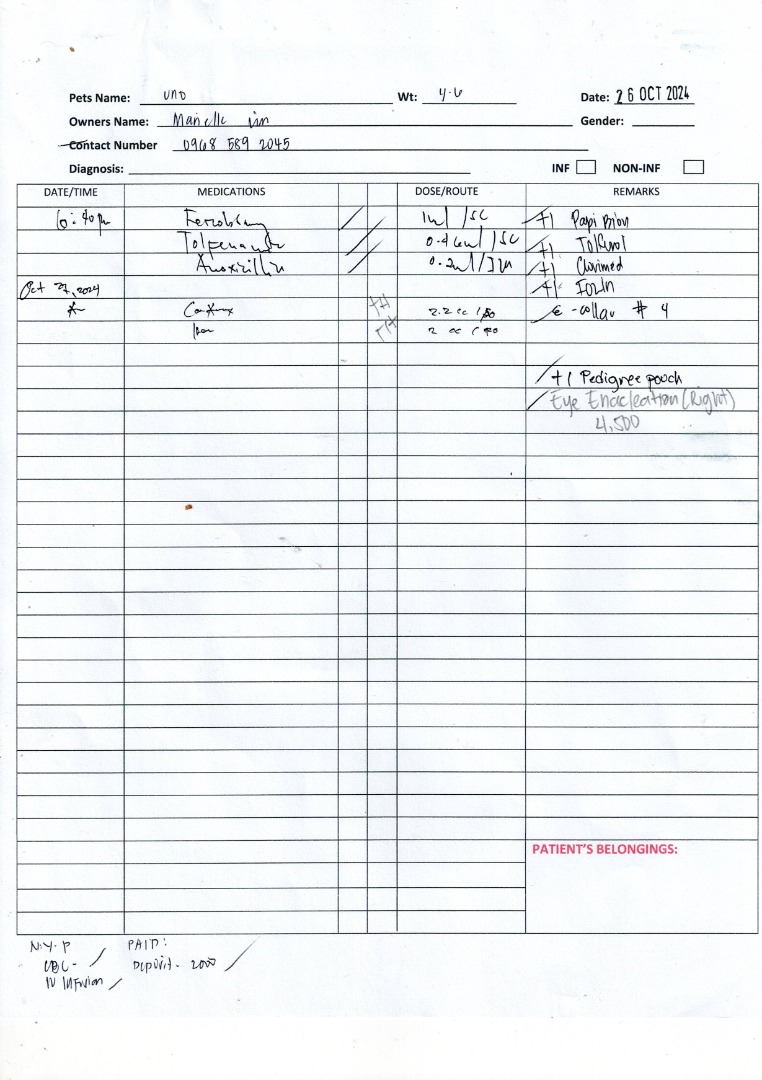 Pets Name: UNO Wt: 4.6 Date: 26 OCT 2024
Owners Name: Marielle Gender:
Contact Number 0968 589 2045
Diagnosis: INF NON-INF
DATE/TIME MEDICATIONS DOSE/ROUTE REMARKS
6:40 pm 1ml / SC +1 Papi
0.46ml / SC +1
Amoxicillin 0.2ml / IM +1
Oct 27, 2024 +1
2.2 cc / PO e-collar # 4
2 cc / PO
+1 Pedigree pouch
Eye Enacleation (Right)
4,500
PATIENT'S BELONGINGS:
N.Y.P PAID:
CBC - Deposit - 2000
IV Infusion